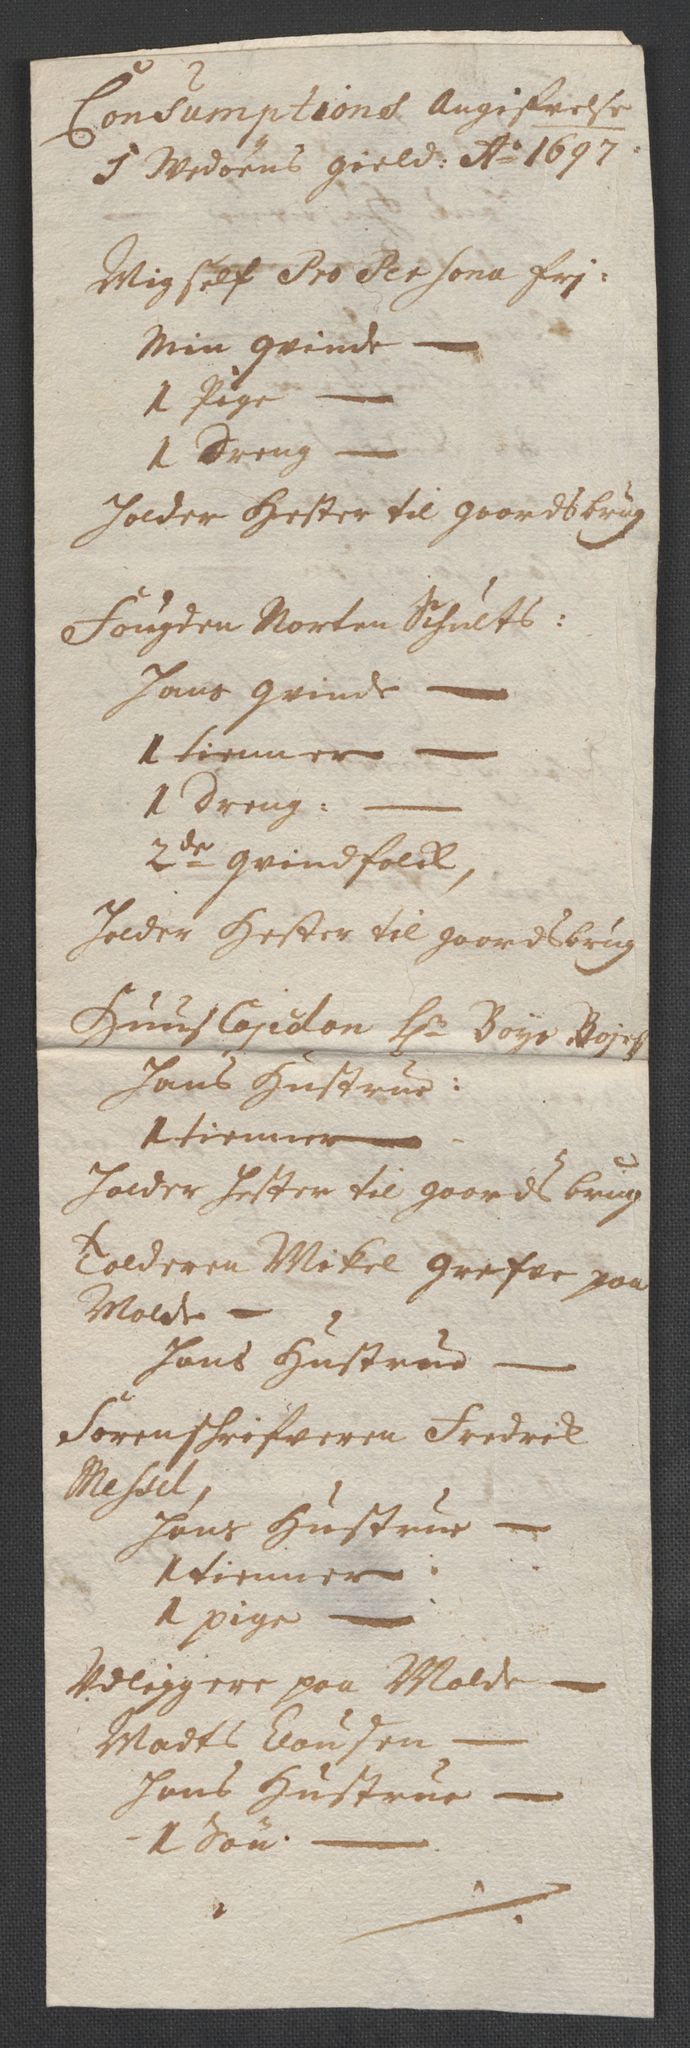 Consumptions Angifvelse
I Wedøens gield: Ao 1697.
Mig self Pro Persona frj:
Min qvinde —
1 Pige —
1 Dreng —
Holder Hester til gaardsbrug
Fougden Morten Schults:
Hans qvinde —
1 tienner —
1 Dreng: —
2de qvindfolck,
Holder Hester til gaardsbrug
Huus Capitlon Hr Boye Bojes
Hans Hustrue:
1 tienner —
Holder Hester til gaards brug
Tolderen Mikel Grefve paa
Molde —
Hans Hustrue —
Sorenschrifveren Fredrik
Messel,
Hans Hustrue —
1 tienner :
1 pige —
Udliggere paa Molde —
Madts Clausen —
Hans Hustrue —
1 Søn. —